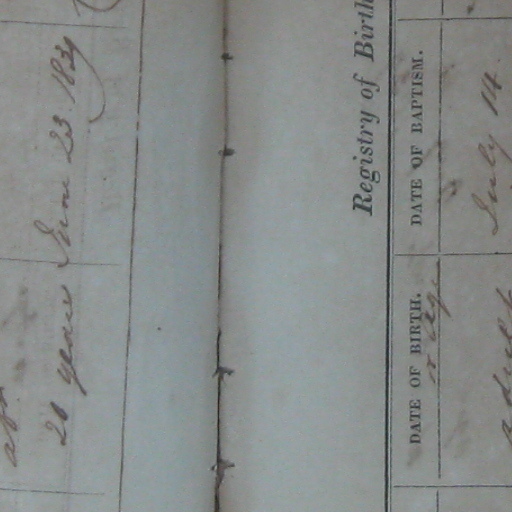 abt
20 years June 23. 1839
Registry of Birth
DATE OF BIRTH. DATE OF BAPTISM.
or Age
adult July 14